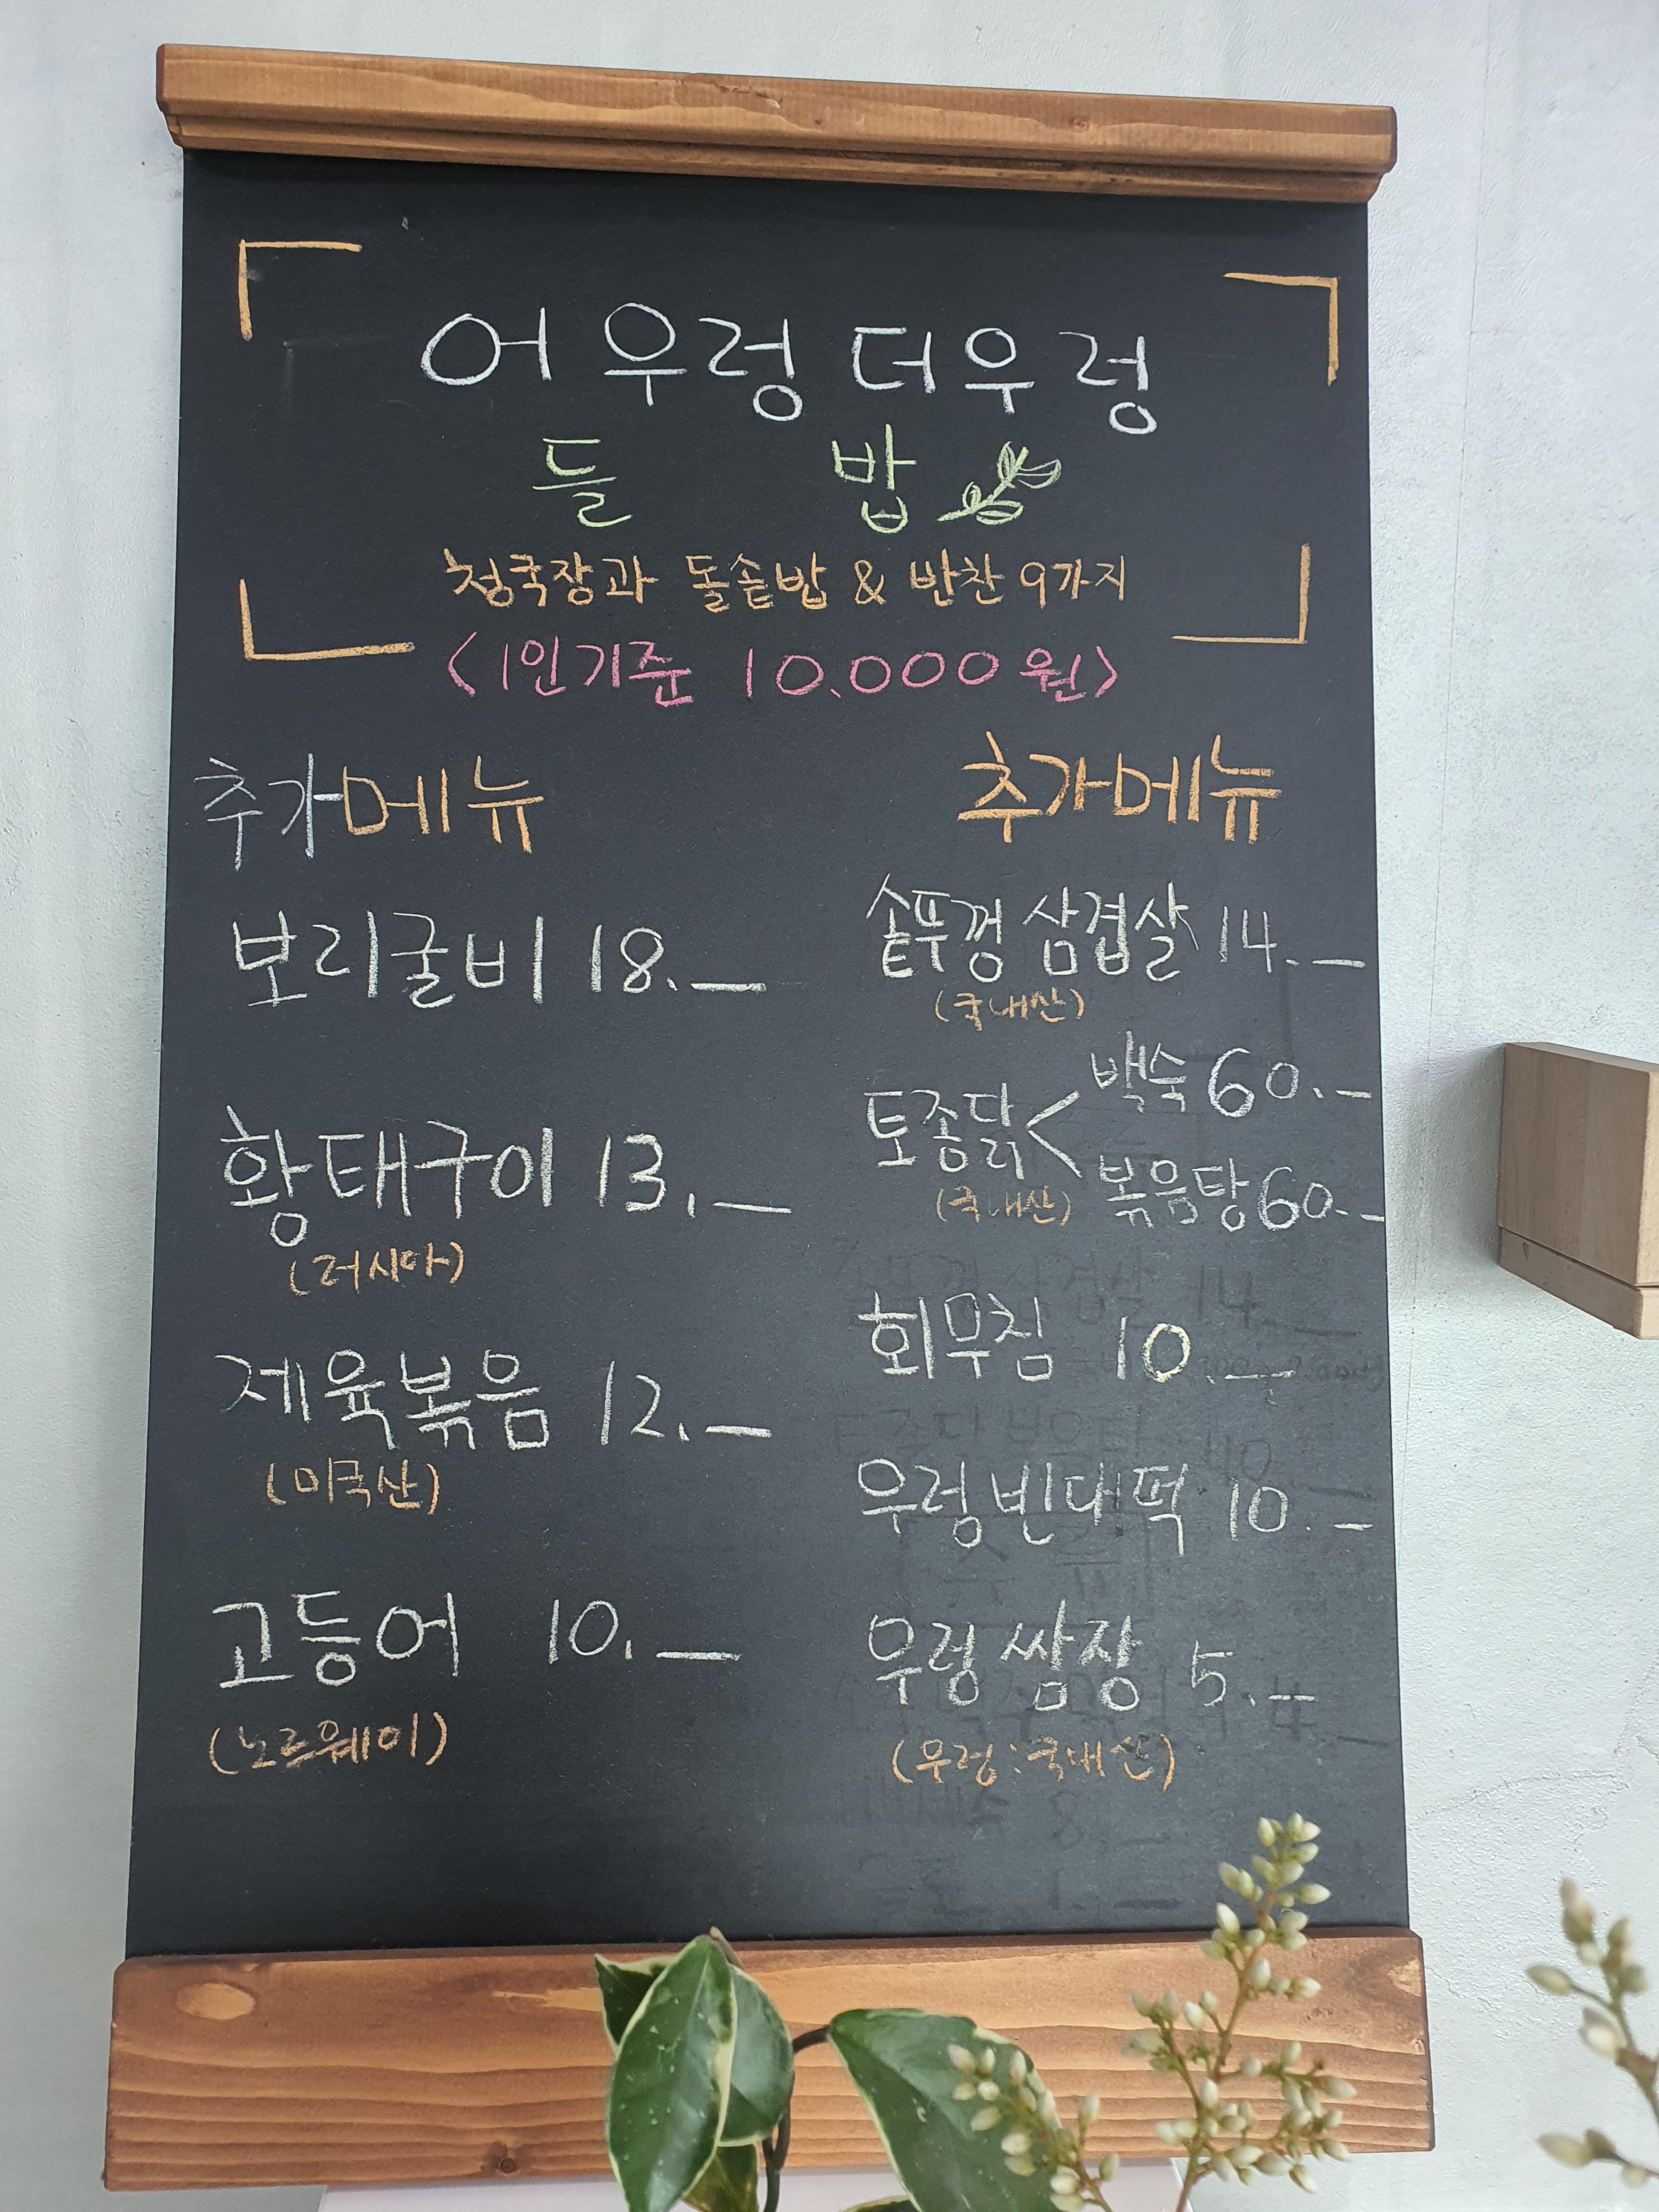 어우렁더우렁
들 밥
청국장과 돌솥밥 & 반찬 9가지
<1인기준 10.000원>
추가메뉴
보리굴비 18.—
황태구이 13.—
(러시아)
제육볶음 12.—
(미국산)
고등어 10.—
(노르웨이)
추가메뉴
솥뚜껑 삼겹살 14.—
(국내산)
토종닭<
백숙 60.—
볶음탕 60.—
(국내산)
회무침 10.—
우렁빈대떡 10.—
우렁쌈장 5.—
(우렁:국내산)